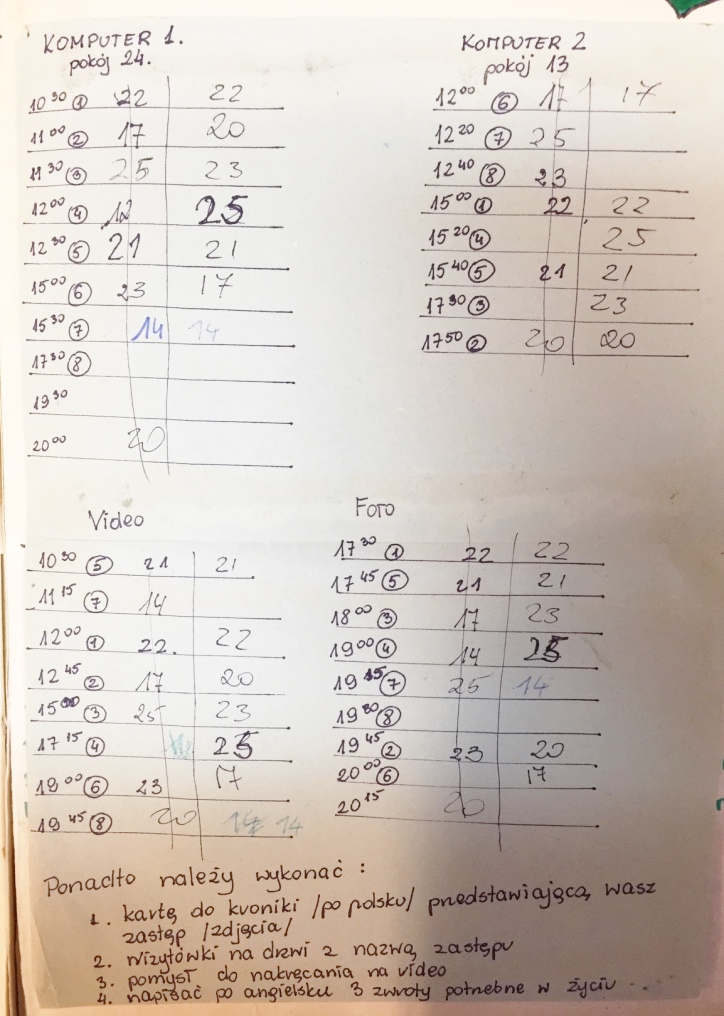 KOMPUTER 1.
pokój 24.
10 30 ① 22 22
11 00 ② 17 20
11 30 ③ 25 23
12 00 ④ 12 25
12 30 ⑤ 21 21
15 00 ⑥ 23 17
15 30 ⑦ 14 14
17 30 ⑧
19 30
20 00 20
KOMPUTER 2
pokój 13
12 00 ⑥ 17 17
12 20 ⑦ 25
12 40 ⑧ 23
15 00 ① 22 22
15 20 ④ 25
15 40 ⑤ 21 21
17 30 ③ 23
17 50 ② 20 20
Video
10 30 ⑤ 21 21
11 15 ⑦ 14
12 00 ① 22. 22
12 45 ② 17 20
15 00 ③ 25 23
17 15 ④ 25
19 00 ⑥ 23 17
19 45 ⑧ 20 14 14
Foto
17 30 ① 22 22
17 45 ⑤ 21 21
18 00 ③ 17 23
19 00 ④ 14 25
19 15 ⑦ 25 14
19 30 ⑧
19 45 ② 23 20
20 00 ⑥ 17
20 15 20
Ponadto należy wykonać :
1. kartę do kroniki /po polsku/ przedstawiającą wasz
zastęp /zdjęcia/
2. wizytówki na drzwi z nazwą zastępu
3. pomysł do nakręcania na video
4. napisać po angielsku 3 zwroty potrzebne w życiu ...